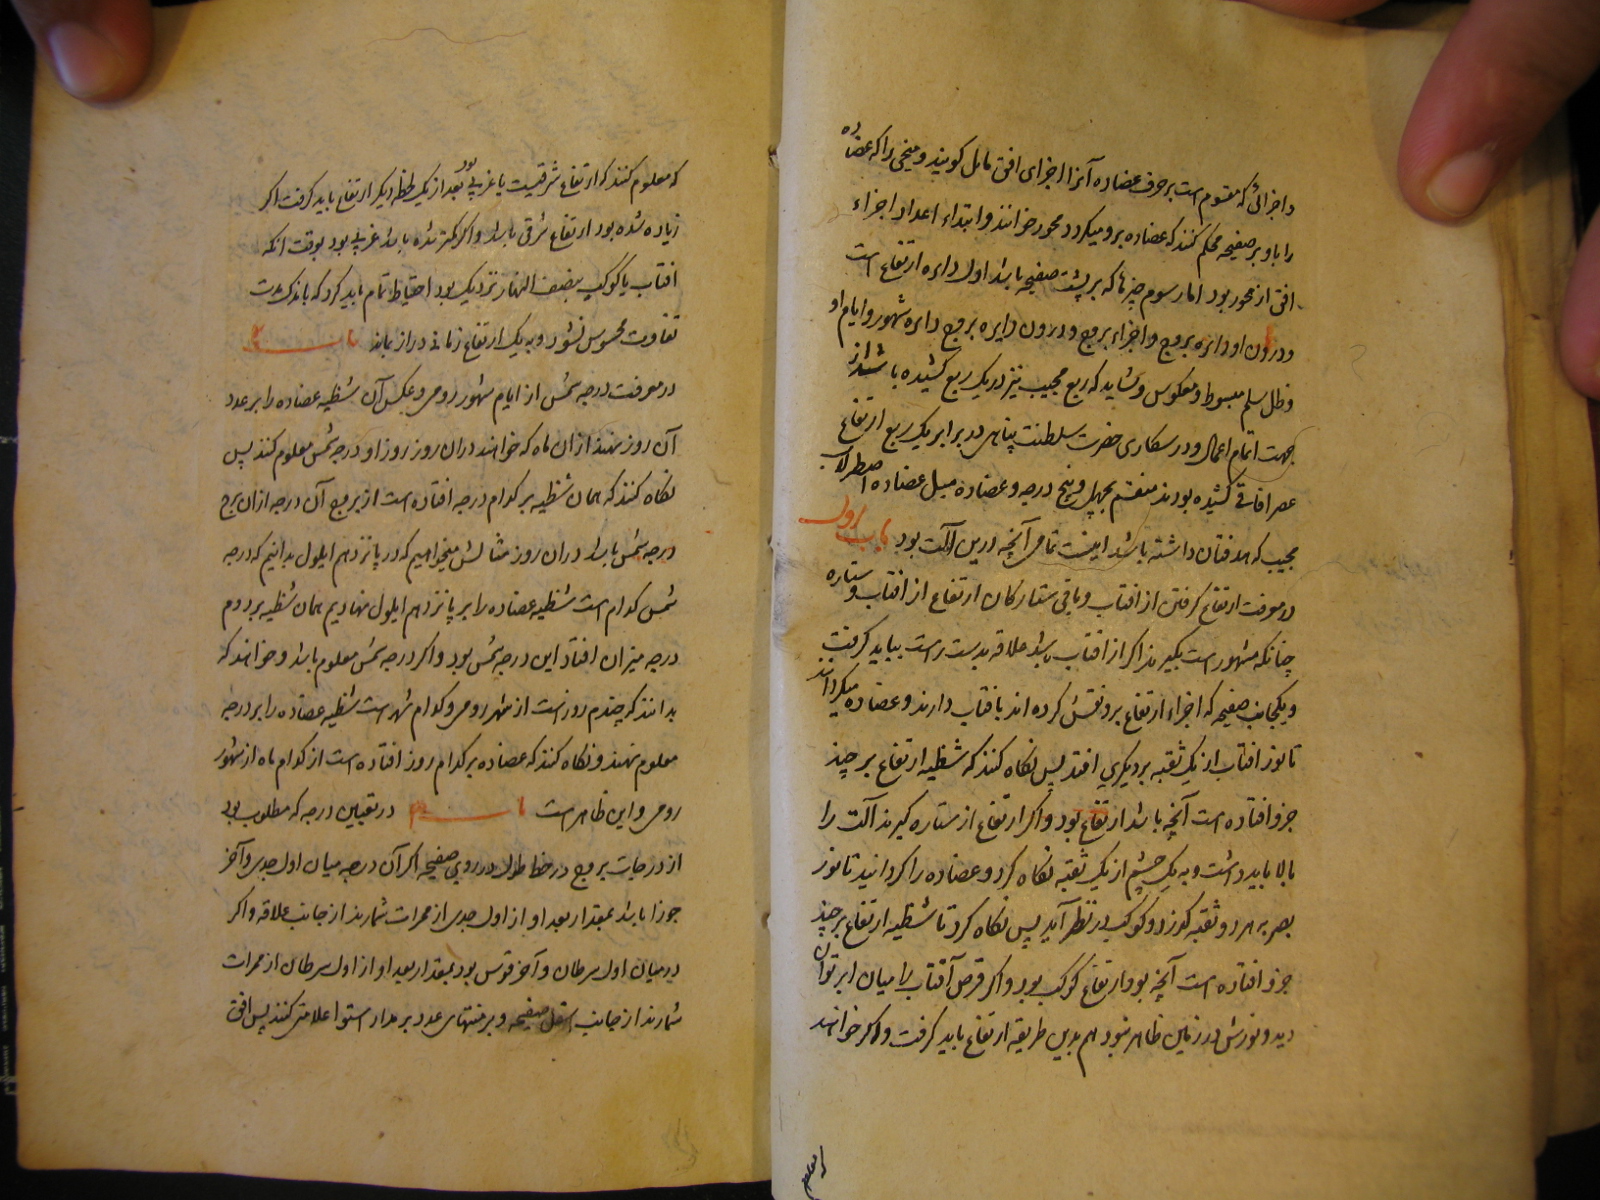 و اجزائی که مقسوم است بر حرف عضاده آنرا اجزای افق مایل کویند و میخی را که عضاده
را باو بر صفیحه محکم کنند که عضاده برو میکردد محور خوانند و ابتداء اعداد اجزاء
افق از محور بود اما رسوم چیزها که بر پشت صفیحه باشد اول دایره ارتفاع است
و درون او دایره بروج و اجزاء بروج و درون دایره بروج دایره شهور و ایام او
و ظل سلم مبسوط و معکوس و شاید که ربع مجیب نیز در یک ربع کشیده باشد از
جهت اتمام اعمال و در سرکاری حضرت سلطنت پناهی در برابر یک ربع ارتفاع
عصر افاقی کشیده بودند منقسم بچهل و پنج درجه و عضاده میل عضاده اصطرلاب
مجیب که هدفتان داشته باشد اینست تمامی آنچه درین آلت بود باب اول
در معرفت ارتفاع کرفتن از افتاب و باقی ستارکان ارتفاع از افتاب و ستاره
چنانکه مشهور است بکیرند اکر از افتاب باشد علاقه بدست راست بباید کرفت
و یکجانب صفیحه که اجزاء ارتفاع برو نقش کرده اند بافتاب دارند و عضاده میکردانند
تا نور افتاب از یک ثقبه بر دیکری افتد پس نکاه کنند که شظیه ارتفاع بر چند
جزو افتاده است آنچه باشد ارتفاع بود و اکر ارتفاع از ستاره کیرند آلت را
بالا باید داشت و به یک چشم از یک ثقبه نکاه کرد و عضاده را کردانید تا نور
بصر بهر دو ثقبه کذرد و کوکب در نظر آید پس نکاه کرد تا شظیه ارتفاع بر چند
جزو افتاده است آنچه بود ارتفاع کوکب بود و اکر قرص آفتاب را میان ابر توان
دید و نورش در زمین ظاهر نبود هم بدین طریقه ارتفاع باید کرفت و اکر خواهند
که معلوم
که معلوم کنند که ارتفاع شرقیست یا غربی بود بعد از یک لحظه دیکر ارتفاع باید کرفت اکر
زیاده شده بود ارتفاع شرقی باشد و اکر کمتر شده باشد غربی بود بوقت آنکه
افتاب یا کوکب بنصف النهار نزدیک بود احتیاط تمام باید کرد که باندک مدت
تفاوت محسوس نشود و به یک ارتفاع زمانی دراز بماند باب ۲
در معرفت درجه شمس از ایام شهور رومی و عکس آن شظیه عضاده را بر عدد
آن روز نهند ازان ماه که خواهند دران روز روز او درجه شمس معلوم کنند پس
نکاه کنند که همان شظیه بر کدام درجه افتاده است از بروج آن درجه ازان برج
درجه شمس باشد دران روز مثالش میخواهیم که در پانزدهم ایلول بدانیم که درجه
شمس کدام است شظیه عضاده را بر پانزدهم ایلول نهادیم همان شظیه بر دوم
درجه میزان افتاد این درجه شمس بود و اکر درجه شمس معلوم باشد و خواهند که
بدانند که چندم روز است از شهر رومی و کدام شهر است شظیه عضاده را بر درجه
معلوم نهند و نکاه کنند که عضاده بر کدام روز افتاده است از کدام ماه از شهور
رومی و این ظاهر است باب در تعیین درجه که مطلوب بود
از درجات بروج در خط طول در روی صفیحه اکر آن درجه میان اول جدی و آخر
جوزا باشد بمقدار بعد او از اول جدی از ممرات شمارند از جانب علاقه و اکر
در میان اول سرطان و آخر قوس بود بمقدار بعد او از اول سرطان از ممرات
شمارند از جانب اسفل صفیحه و بر منتهای عدد بر مدار استوا علامتی کنند پس افق